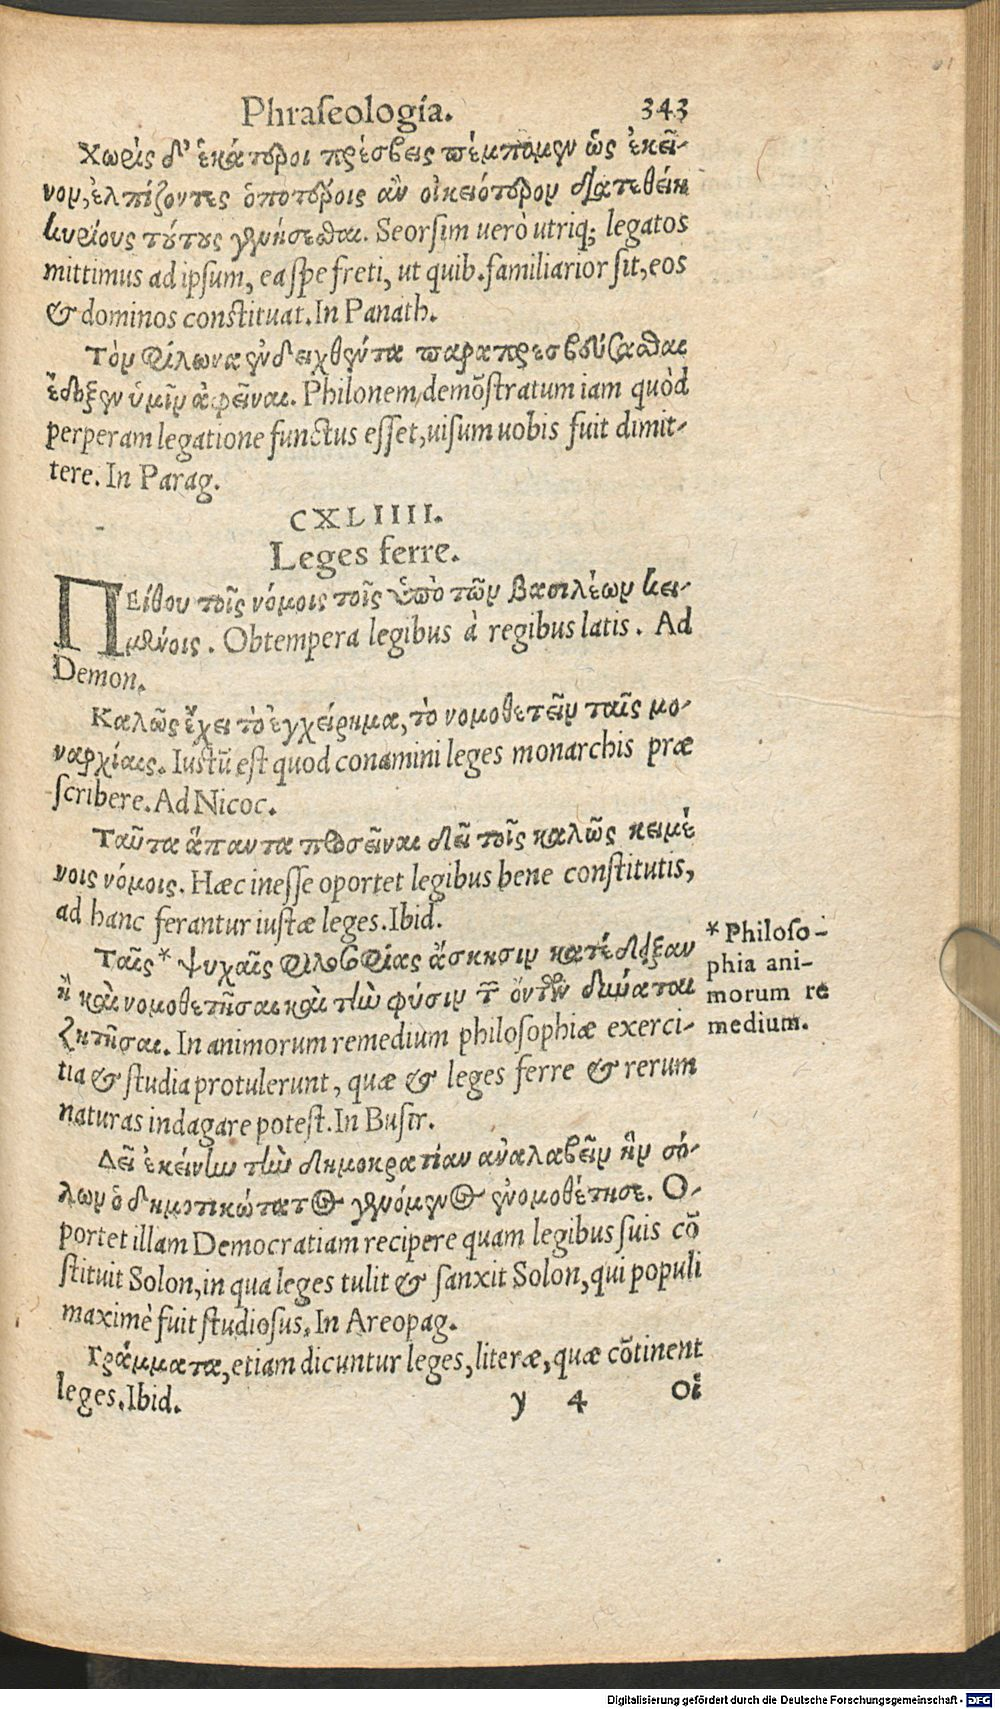 Phraſeologia. 343
Χωρὶς δ' ἑκάτεροι πρέσβεις πέμπομεν ὡς ἐκεῖ-
νον, ἐλπίζοντες ὁποτέροις ἂν οἰκειότερον διατεθείη
κυρίους τούτους γενήσεσθαι. Seorſim uerò utriq; legatos
mittimus ad ipſum, ea ſpe freti, ut quib. familiarior ſit, eos
& dominos conſtituat. In Panath.
Τὸν Φίλωνα ἐνδειχθέντα παραπρεσβεύσασθαι
ἔδοξεν ὑμῖν ἀφεῖναι. Philonem, demõſtratum iam quòd
perperam legatione functus eſſet, uiſum uobis fuit dimit-
tere. In Parag.
CXLIIII.
Leges ferre.
ΠΕίθου τοῖς νόμοις τοῖς ὑπὸ τῶν βασιλέων κει-
μένοις. Obtempera legibus à regibus latis. Ad
Demon.
Καλῶς ἔχει τὸ ἐγχείρημα, τὸ νομοθετεῖν ταῖς μο-
ναρχίαις. Iuſtũ eſt quod conamini leges monarchis præ
ſcribere. Ad Nicoc.
Ταῦτα ἅπαντα προσεῖναι δεῖ τοῖς καλῶς κειμέ
νοις νόμοις. Hæc ineſſe oportet legibus bene conſtitutis,
ad hanc ferantur iuſtæ leges. Ibid.
Ταῖς * ψυχαῖς φιλοσοφίας ἄσκησιν κατέδειξαν
ἣ καὶ νομοθετῆσαι καὶ τὴν φύσιν τῶν ὄντων δύναται
ζητῆσαι. In animorum remedium philoſophiæ exerci-
tia & ſtudia protulerunt, quæ & leges ferre & rerum
naturas indagare poteſt. In Buſir.
* Philoſo-
phia ani-
morum re
medium.
Δεῖ ἐκείνην τὴν δημοκρατίαν ἀναλαβεῖν ἣν σό-
λων ὁ δημοτικώτατος γενόμενος ἐνομοθέτησε. O-
portet illam Democratiam recipere quam legibus ſuis cõ
ſtituit Solon, in qua leges tulit & ſanxit Solon, qui populi
maximè fuit ſtudioſus. In Areopag.
Γράμματα, etiam dicuntur leges, literæ, quæ cõtinent
leges. Ibid.
y 4 Οἱ
Digitalisierung gefördert durch die Deutsche Forschungsgemeinschaft - DFG